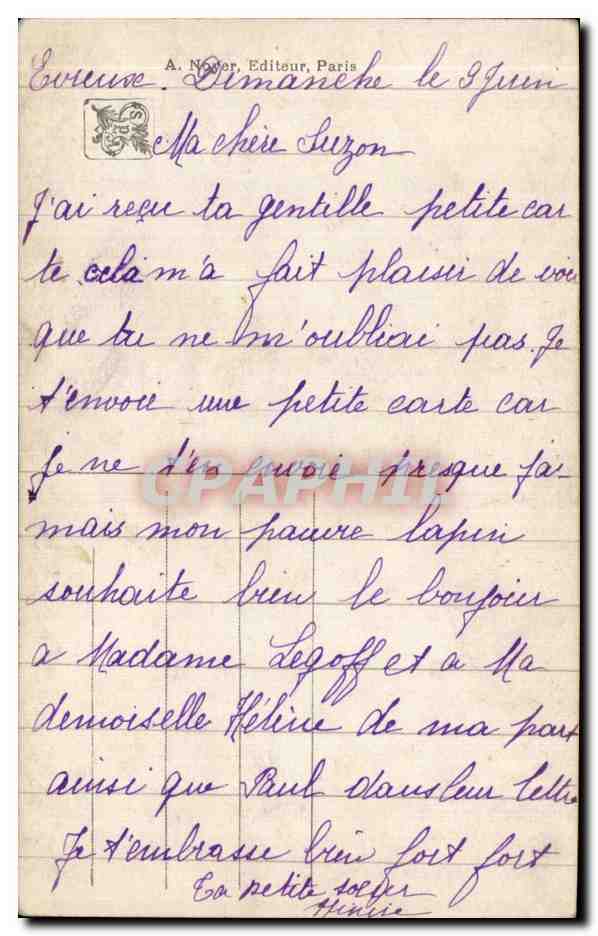 A. Noyer, Editeur, Paris
Evreux. Dimanche le 9 Juin
Ma chère Suzon
J'ai reçu ta gentille petite car
te cela m'a fait plaisir de voir
que tu ne m'oubliai pas. Je
t'envoie une petite carte car
je ne t'en envoie presque ja-
mais mon pauvre lapin
souhaite bien le bonjour
a Madame Legoff et a Ma
demoiselle Hélène de ma part
ainsi que Paul dans leur lettre
Je t'embrasse bien fort fort
Ta petite soeur
CPAPHIL